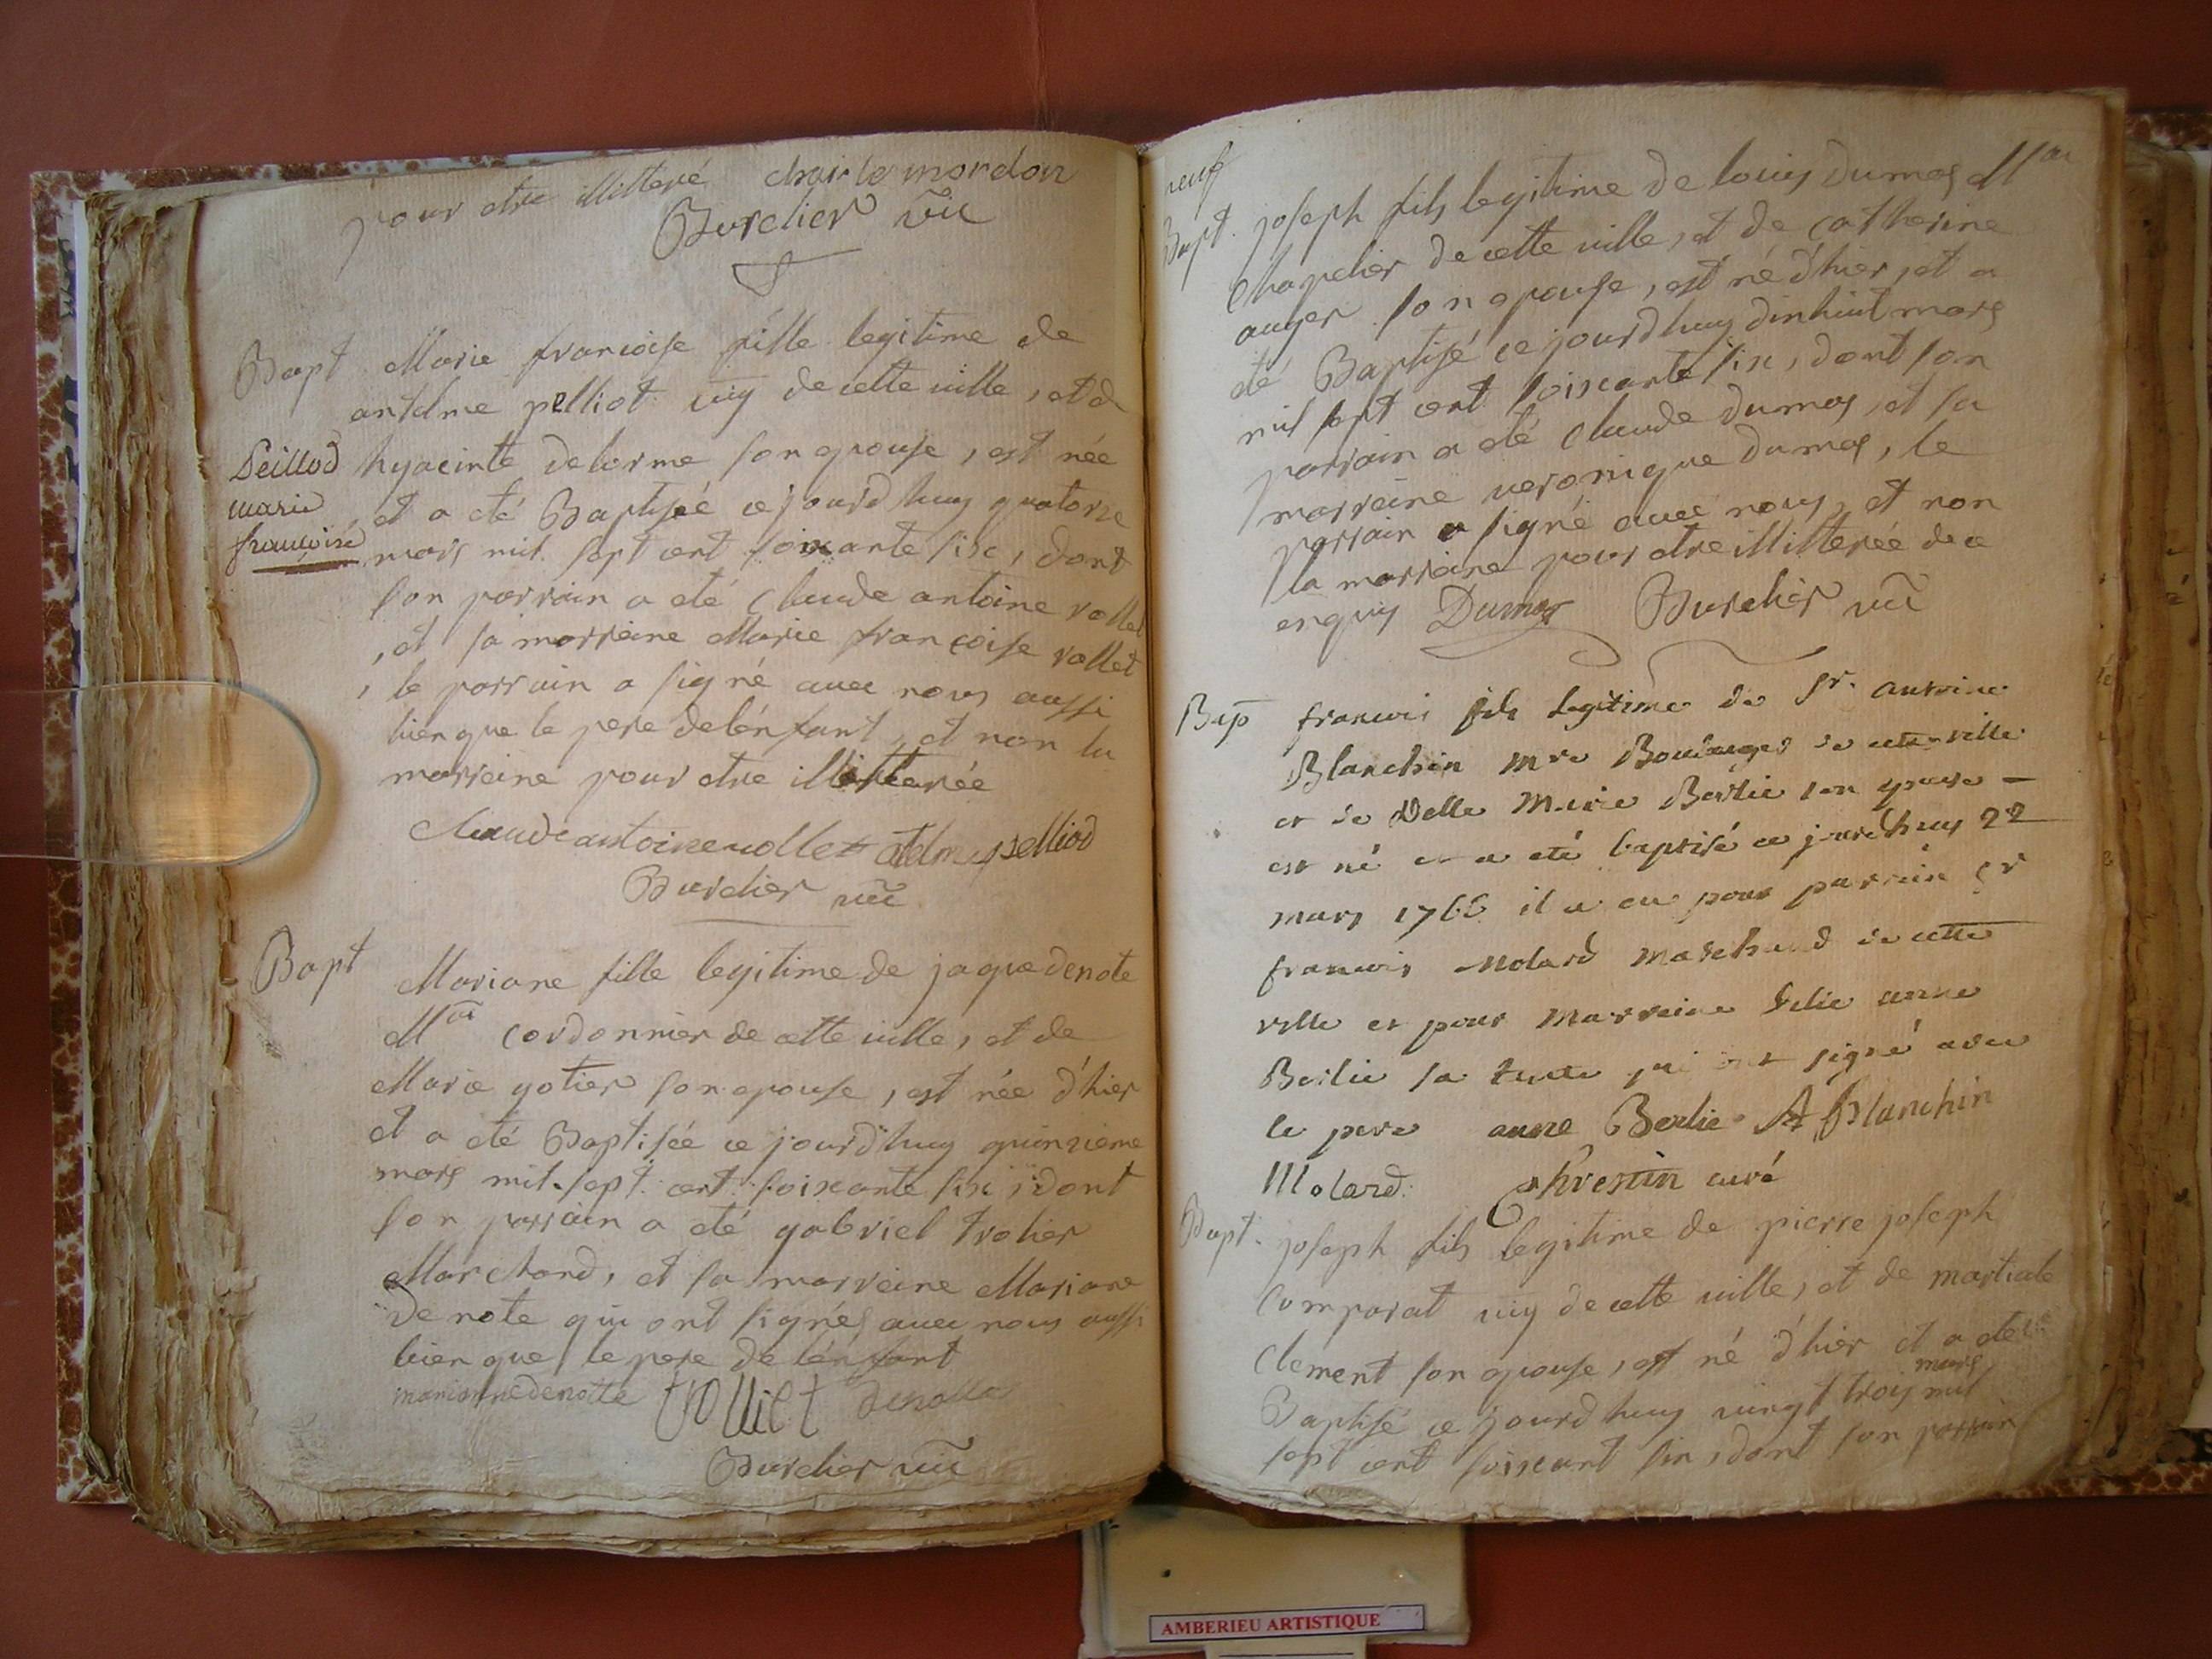 pour etre illitteré charle mordon
Burelier vic
Bapt Marie francoise fille legitime de
antelme pelliot vig de cette ville, et d
Peillod hyacinte delorme son epouse, est née
marie et a eté Baptisée ce jourdhuy quatorze
francoise mars mil sept cent soixante six, dont
son parrain a eté Claude antoine vollet
, et sa marreine Marie francoise vollet
, le parrain a signé avec nous aussi
bien que le pere de lénfant, et non la
marreine pour etre illitterée
Claude antoine vollet pelliod
Burelier vic
Bapt Mariane fille legitime de jaque denote
Mtre cordonnier de cette ville, et de
Marie gotier son epouse, est née d'hier
et a eté Baptisée ce jourdhuy quinzieme
mars mil sept cent soixante six, dont
son parrain a eté gabriel trolier
Marchand, et sa marreine Mariane
Denote qui ont signés avec nous aussi
bien que le pere de lénfant
marianne denotte trolliet denotte
Burelier vic
neuf
Bapt. joseph fils legitime de louis dumas Mtre
Chapelier de cette ville, et de Catherine
auger son epouse, est né d'hier, et a
eté Baptisé ce jourdhuy dixhuit mars
mil sept cent soixante six, dont son
parrain a eté Claude dumas, et sa
marreine veronique dumas, le
parrain a signé avec nous, et non
la marreine pour etre illitterée de ce
enquis Dumas Burelier vic
Bap francois fils legitime de Sr. antoine
Blanchin mre Boulanger de cette ville
et de Delle Marie Berlie son epouse
est né et a eté baptisé ce jourdhuy 22
mars 1766 il a eu pour parrain Sr
francois Molard marchand de cette
ville et pour marreine delle anne
Berlie sa tante qui ont signé avec
le pere anne Berlie A Blanchin
Molard. Chrestin curé
Bapt. joseph fils legitime de pierre joseph
Comparat vig de cette ville, et de martiale
Clement son epouse, est né d'hier et a eté
mars
Baptisé ce jourdhuy vingt trois mil
sept cent soixant six, dont son parrain
AMBERIEU ARTISTIQUE